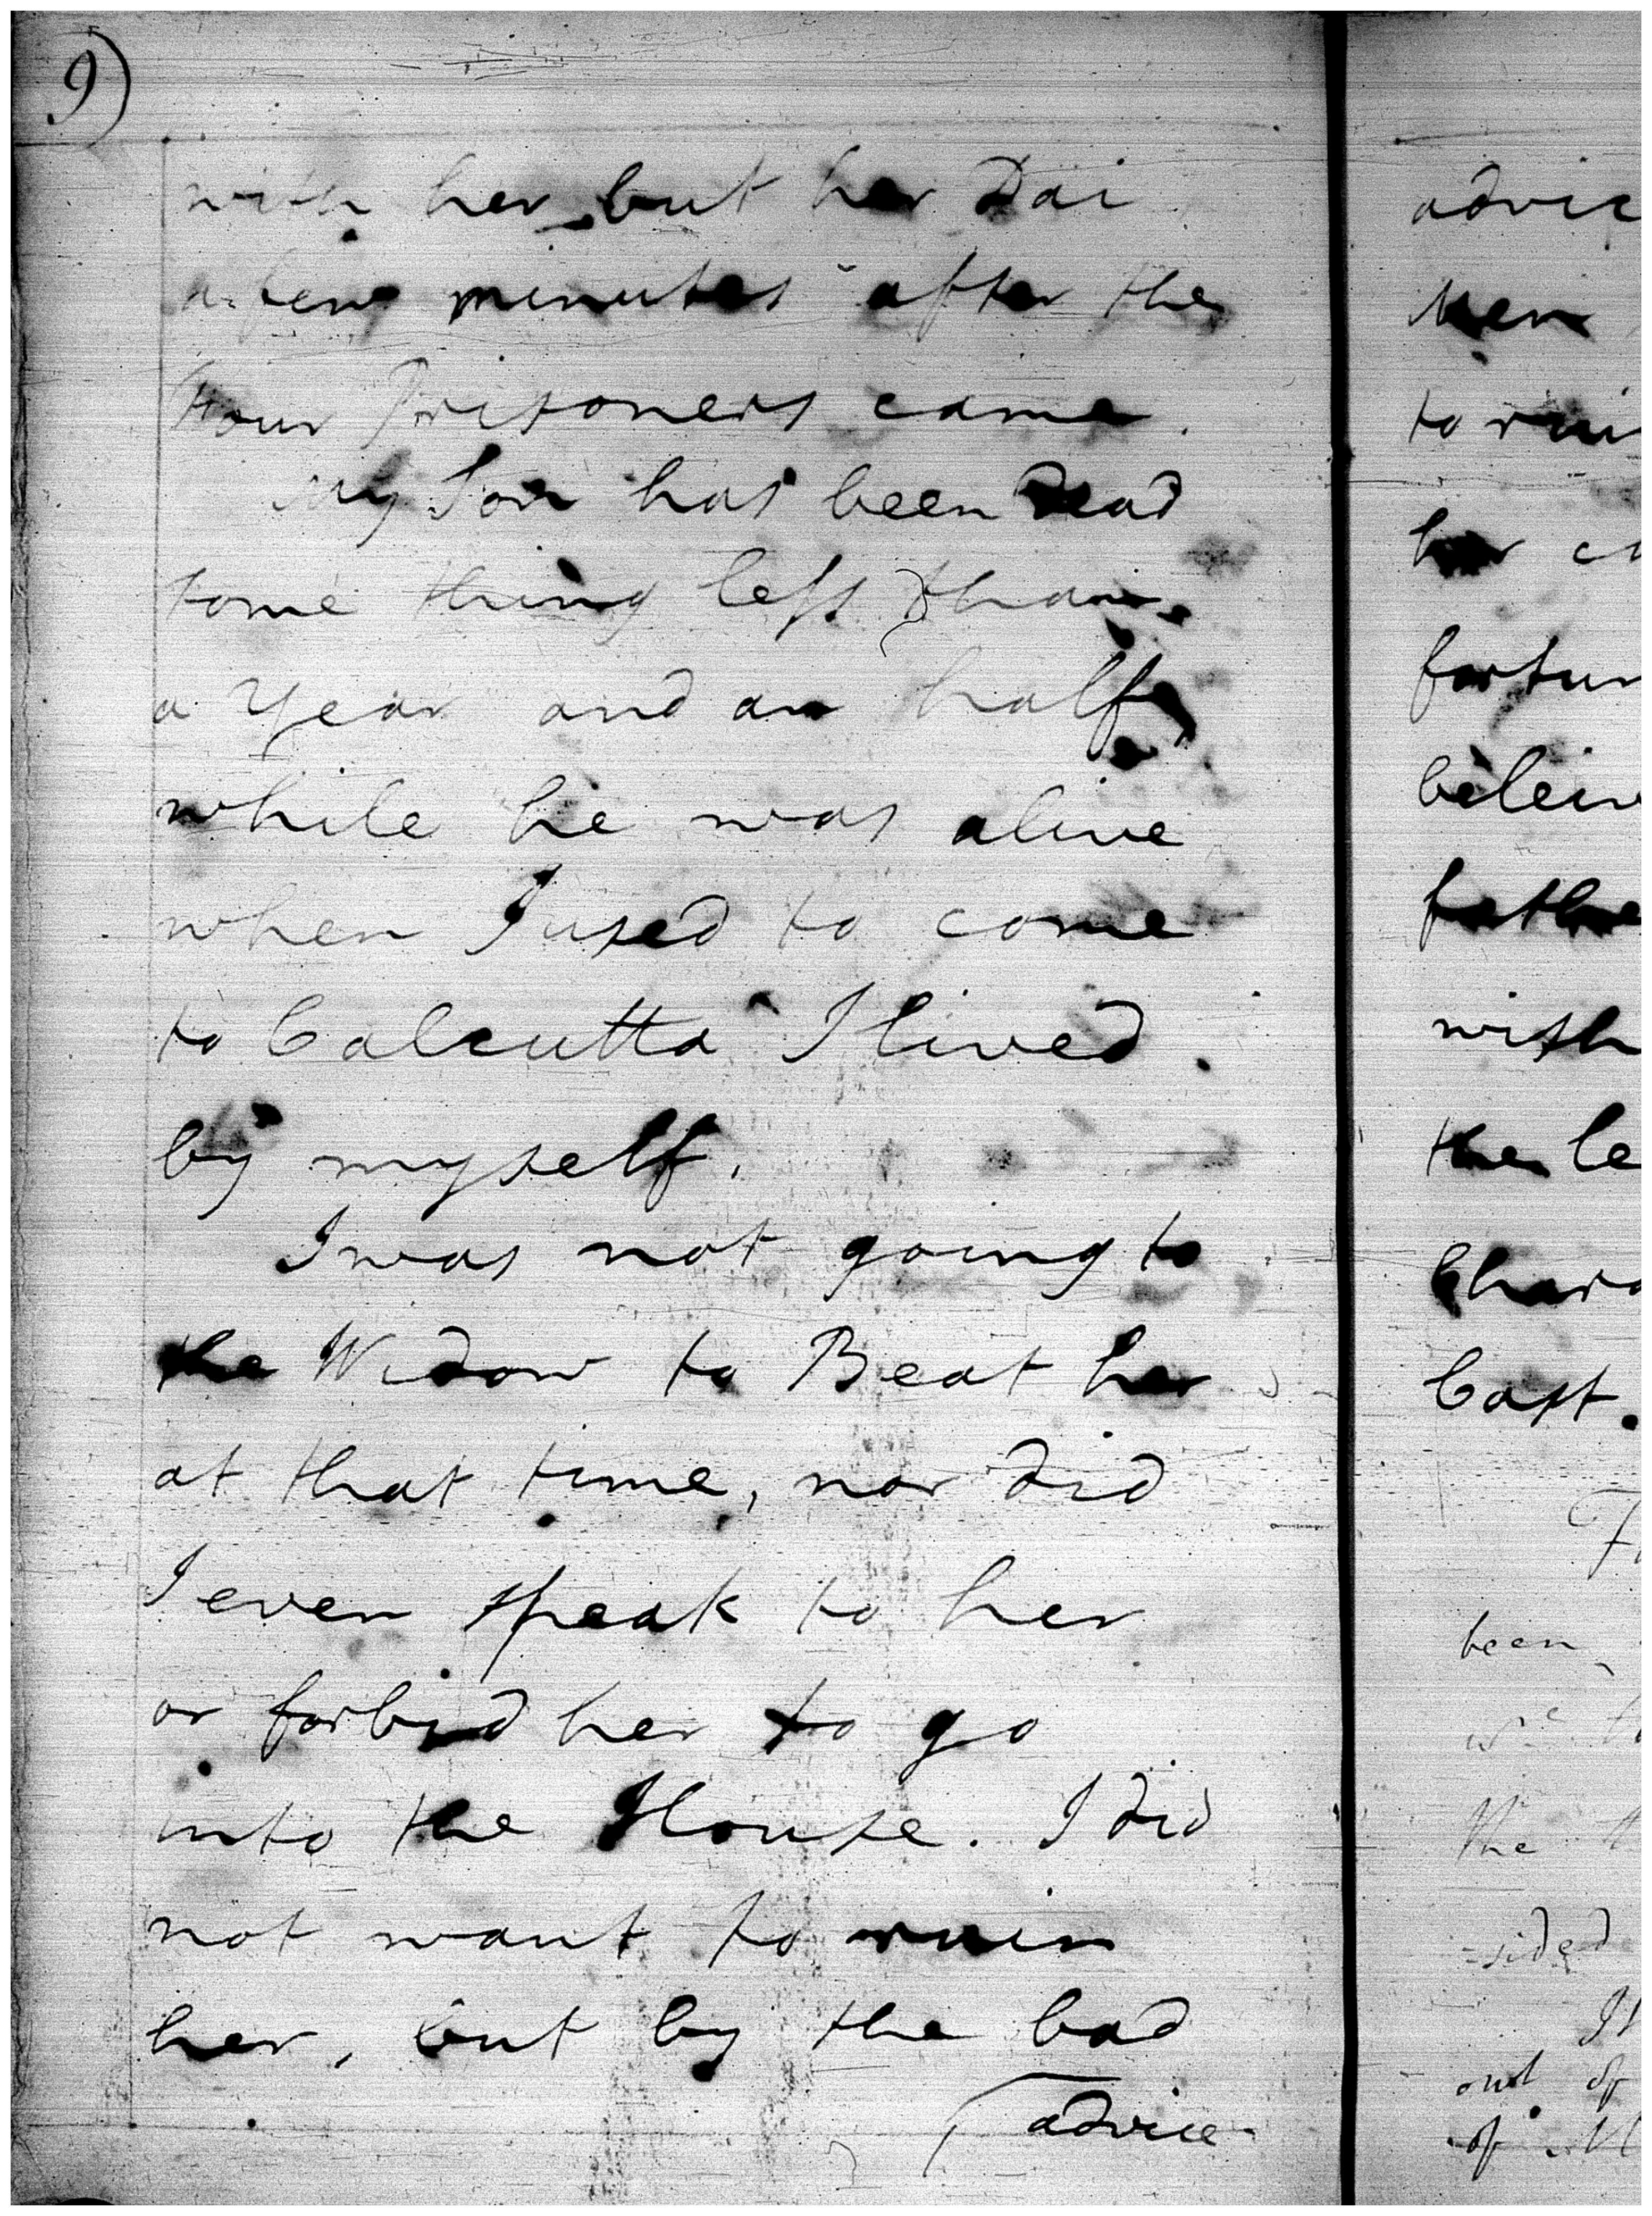 9)
with her, but her Dai
a few minutes after the
Four Prisoners came.
My Son has been Dead
some thing less than
a Year and an half,
while he was alive
when I used to come
to Calcutta I lived
by myself.
I was not going to
the Widow to Beat her
at that time, nor did
I even speak to her
or forbid her to go
into the House. I did
not want to ruin
her, but by the bad
advice
advic
Men
to rui
her
fortun
beleiv
fathe
with
the le
Chara
Cast.
been
we
the
-sided
out of
of